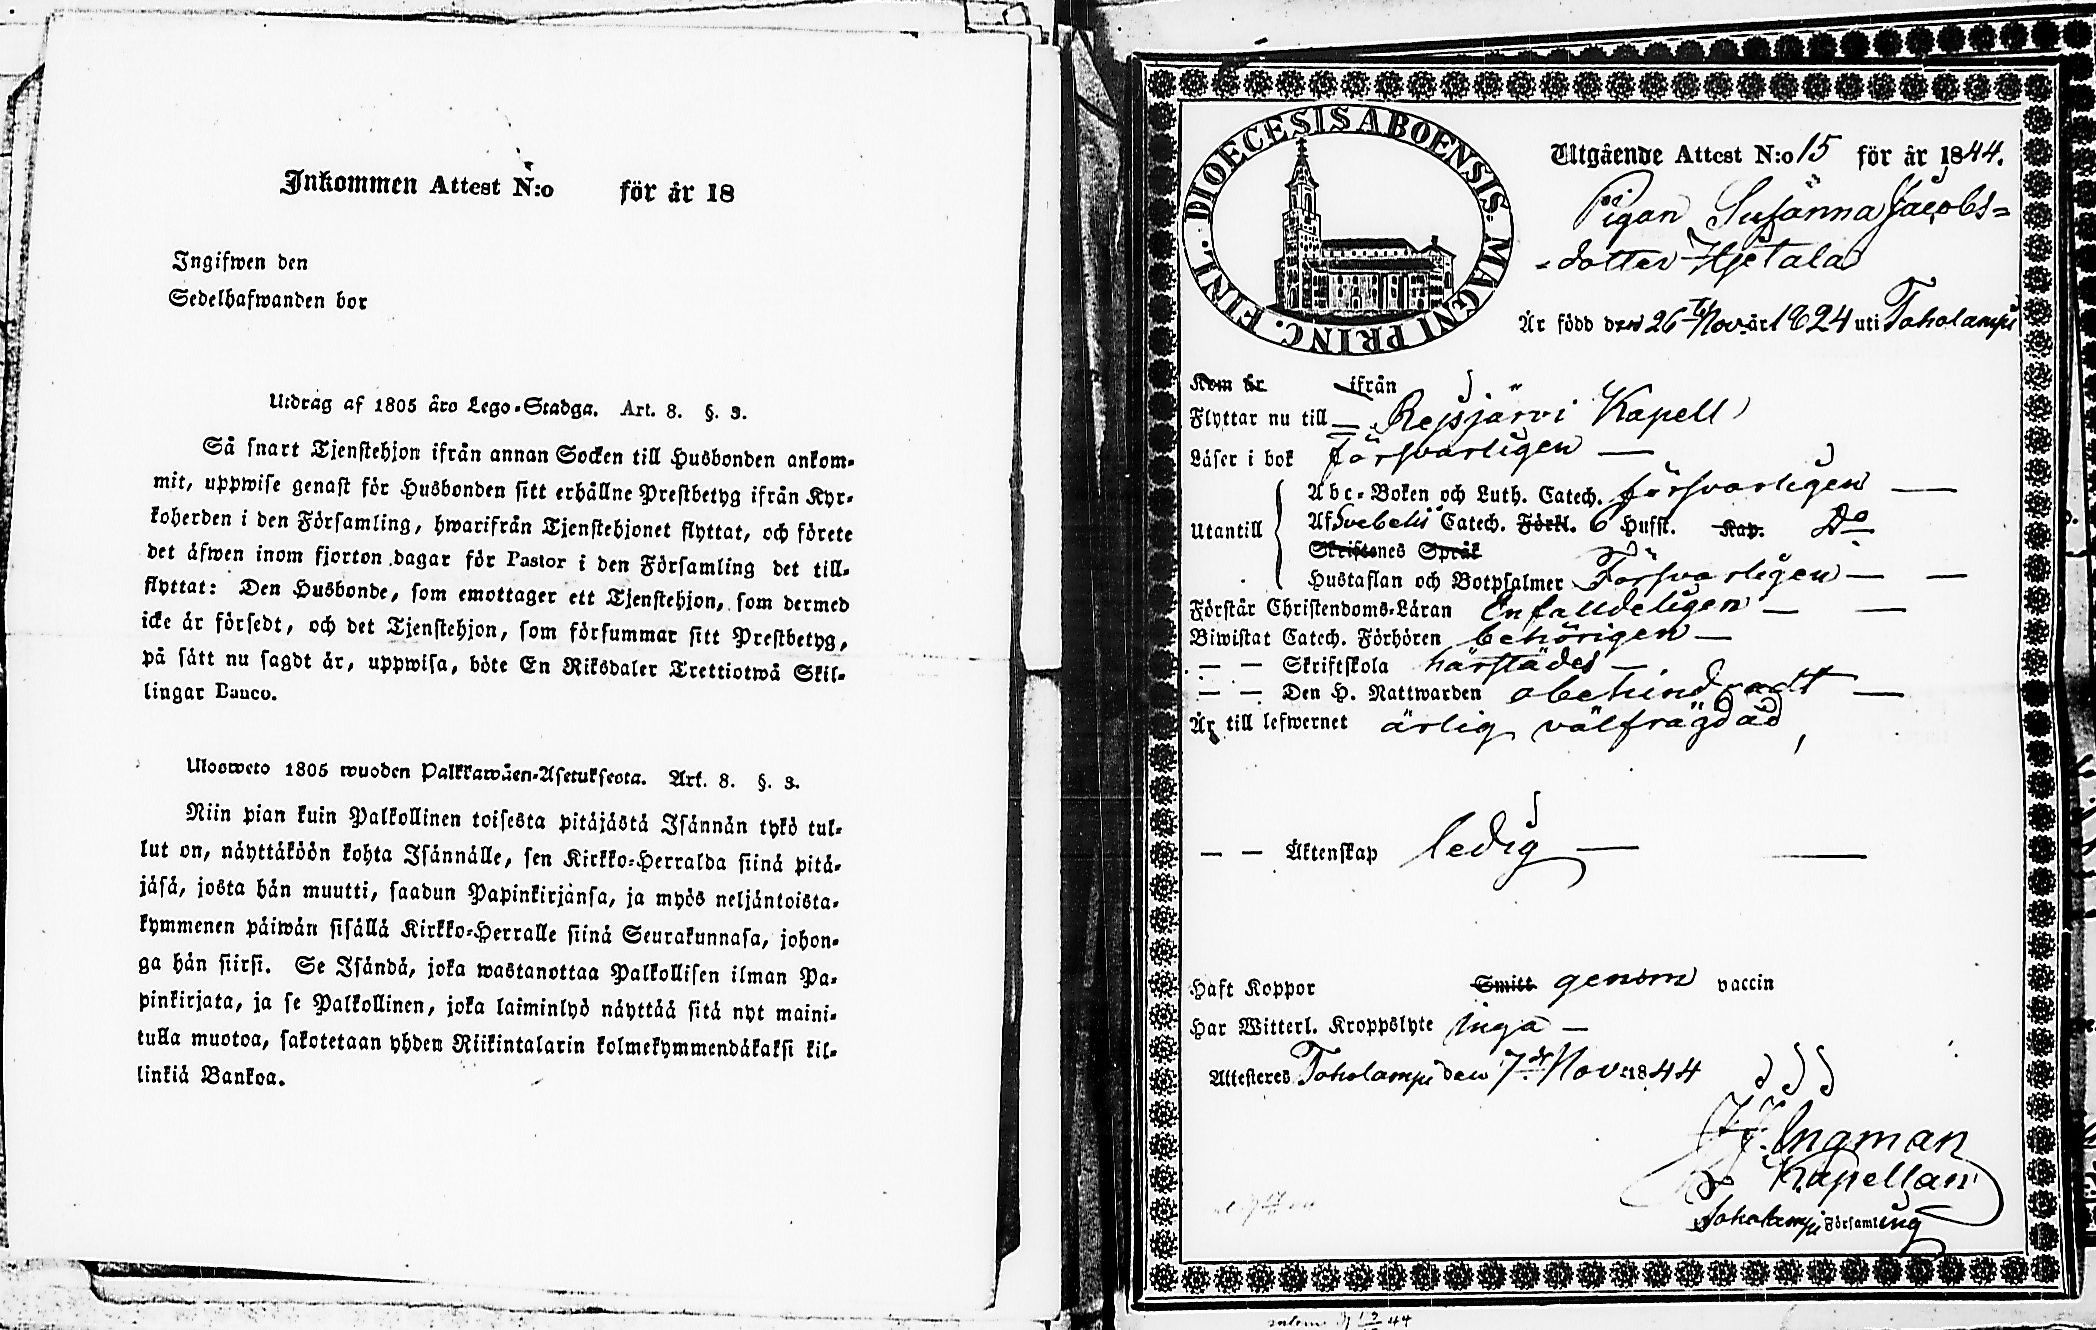 Inkommen Attest N:o för år 18
Ingifwen den
Sedelhafwanden bor
Utdrag af 1805 års Lego-Stadga. Art. 8. §. 3.
Så snart Tjenstehjon ifrån annan Socken till Husbonden ankom-
mit, uppwise genast för Husbonden sitt erhållne Prestbetyg ifrån Kyr-
koherden i den Församling, hwarifrån Tjenstehjonet flyttat, och förete
det äfwen inom fjorton dagar för Pastor i den Församling det till-
flyttat: Den Husbonde, som emottager ett Tjenstehjon, som dermed
icke är försedt, och det Tjenstehjon, som försummar sitt Prestbetyg,
på sätt nu sagdt är, uppwisa, böte En Riksdaler Trettiotwå Skil-
lingar Banco.
Ulosweto 1805 wuoden Palkkawäen-Asetuksesta. Art. 8. §. 3.
Niin pian kuin Palkollinen toisesta pitäjästä Isännän tykö tul-
lut on, näyttäköön kohta Isännälle, sen Kirkko-Herralda siinä pitä-
jäsä, josta hän muutti, saadun Papinkirjansa, ja myös neljäntoista-
kymmenen päiwän sisällä Kirkko-Herralle siinä Seurakunnasa, johon-
ga hän siirsi. Se Isändä, joka wastanottaa Palkollisen ilman Pa-
pinkirjata, ja se Palkollinen, joka laiminlyö näyttää sitä nyt maini-
tulla muotoa, sakotetaan yhden Riikintalarin kolmekymmendäkaksi kil-
linkiä Bankoa.
DIOECESIS ABOENSIS MAGNI PRINC. FINL.
Utgående Attest N:o 15 för år 1844.
Pigan Susanna Jacobs=
=dotter Hjetala
Är född den 26 Nov. år 1824 uti Toholampi
Kom år ifrån
Flyttar nu till Reisjärvi Kapell
Läser i bok försvarligen
Utantill
Abc-Boken och Luth. Catech. försvarligen
Af Svebelii Catech. Förkl. 6 Hufst. Kap. Do
Skriftenes Språk
Hustaflan och Botpsalmer Försvarligen
Förstår Christendoms-Läran Enfaldeligen
Biwistat Catech. Förhören behörigen
— — Skriftskola härstädes
— — Den H. Nattwarden obehindradt
Är till lefwernet ärlig välfrägdad,
— — Äktenskap ledig
Haft Koppor Smitt genom vaccin
Har Witterl. Kroppslyte inga
Attesteras Toholampi den 7de Nov. 1844
J. J. Ingman
Kapellan
Toholampi Församling